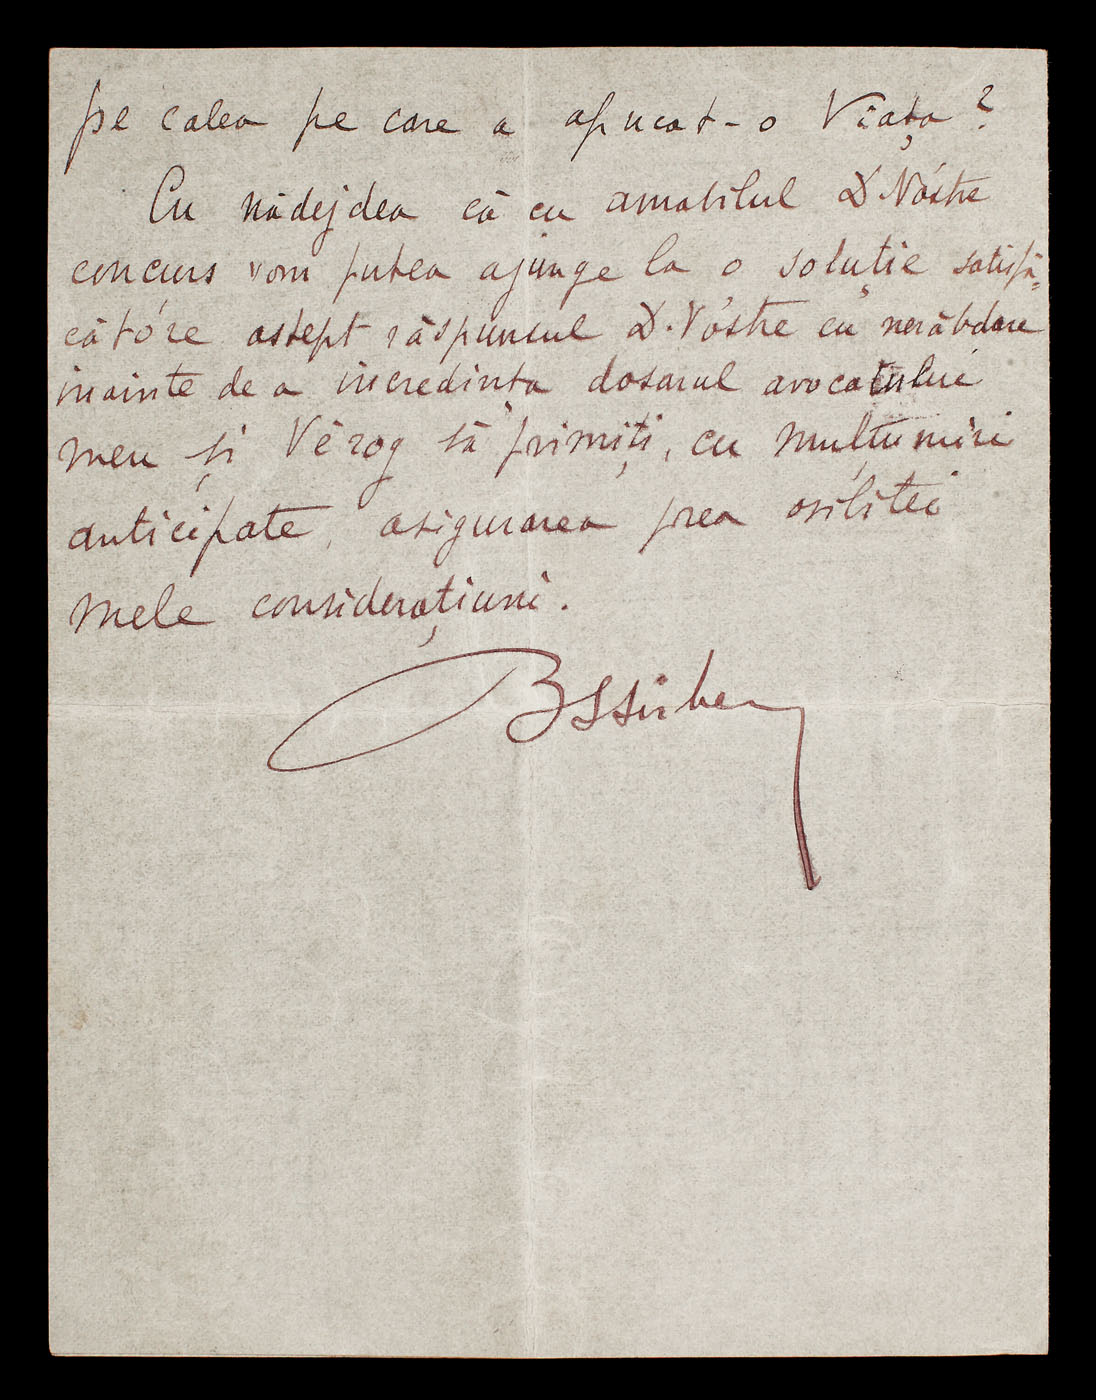 pe calea pe care a apucat-o Viața?
Cu nădejdea că cu amabilul D-Vóstre
concurs vom putea ajunge la o soluție satisfă=
cătóre astept răspunsul D-Vóstre cu nerăbdare
inainte de a incredința dosarul avocatului
meu și Vĕ rog să primiți, cu mulțumiri
anticipate, asigurarea prea osibitei
mele considerațiuni.